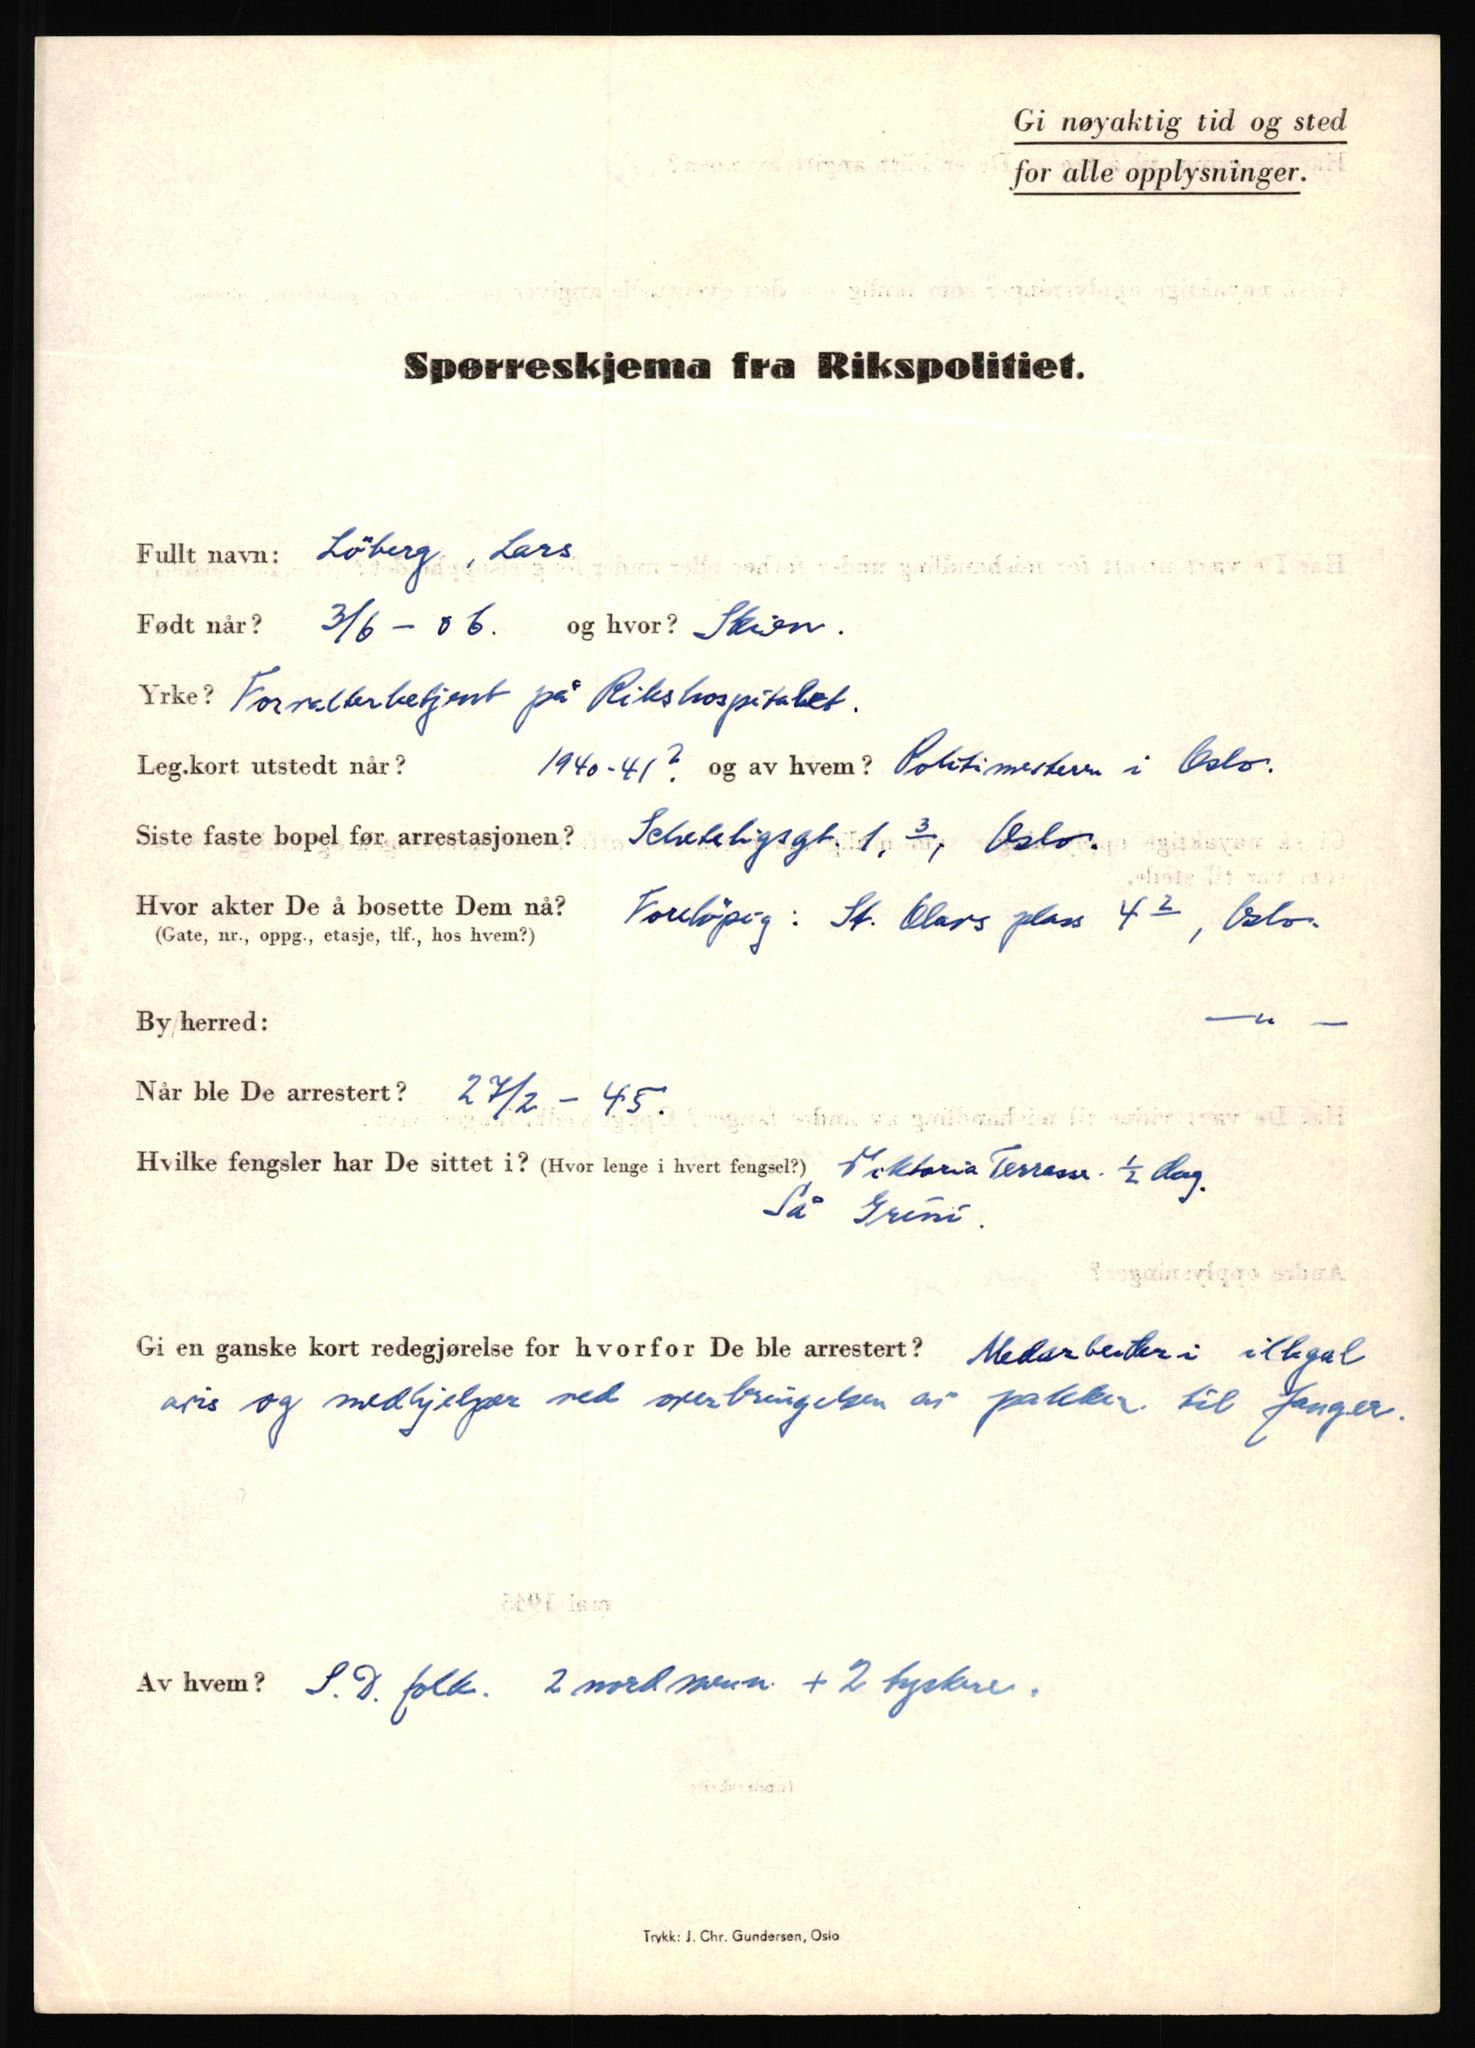 Gi nøyaktig tid og sted
for alle opplysninger.
Spørreskjema fra Rikspolitiet.
Fullt navn: Löberg, Lars
Født når? 3/6 - 06. og hvor? Skien.
Yrke? Forvalterbetjent på Rikshospitalet.
Leg.kort utstedt når? 1940-41? og av hvem? Politimesteren i Oslo.
Siste faste bopel før arrestasjonen? Scheteligsgt. 1, 3, Oslo.
Hvor akter De å bosette Dem nå? Forelöpig: St. Olavs plass 4 2, Oslo.
(Gate, nr., oppg., etasje, tlf., hos hvem?)
By/herred: —"—
Når ble De arrestert? 27/2 - 45.
Hvilke fengsler har De sittet i? (Hvor lenge i hvert fengsel?) Viktoria Terrasse. 1/2 dag.
Så Grini.
Gi en ganske kort redegjørelse for hvorfor De ble arrestert? Medarbeider i illegal
avis og medhjelper ved overbringelsen av pakker til fanger.
Av hvem? S.D. folk. 2 nordmenn + 2 tyskere.
Trykk: J. Chr. Gundersen, Oslo